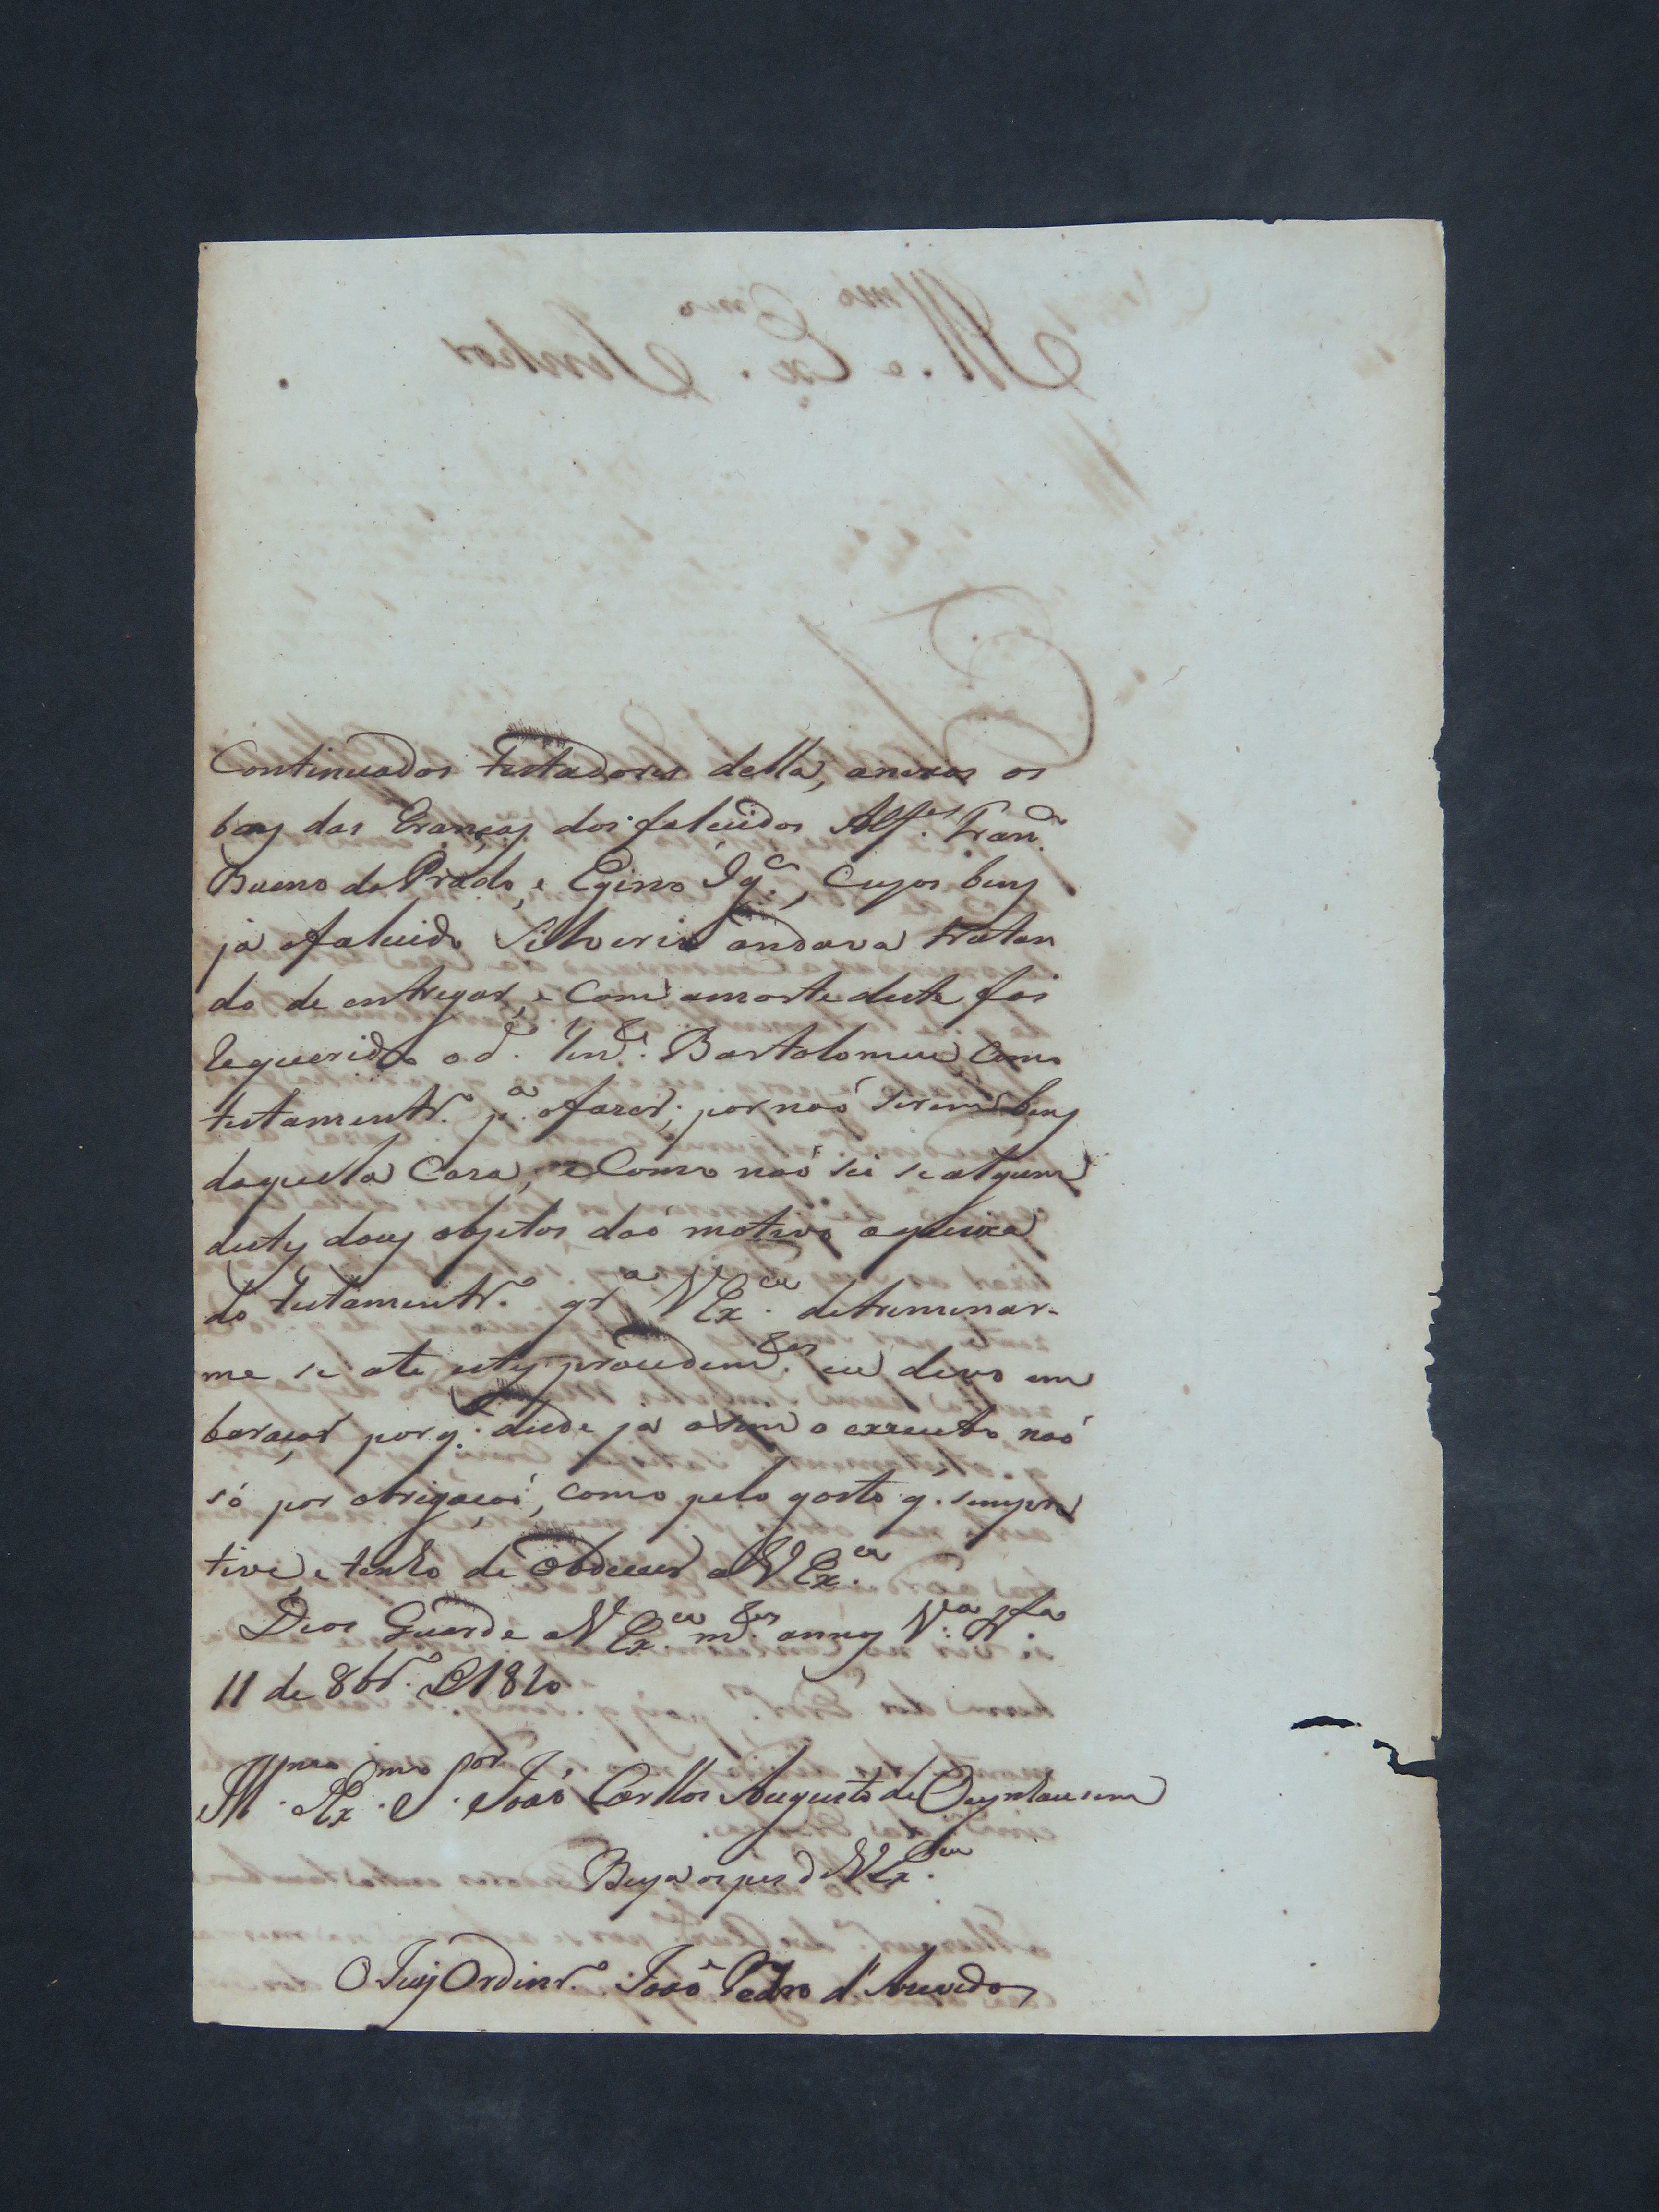 Continuados testadores della, anexos os
bens das Eranças dos falecidos Alf.es Fran.co
Bueno do Prado, e Egino Ig.co, cujos bens
já o falecido Silverio andava tratan
do de entregar, e com a morte deste foi
requerido o d.o Ten.e Bartolomeu como
testamentr.o p.a o fazer, por naó serem bens
daquela Casa, e como naó sei se algum
destes dous objetos daó motivo a queixa
do testamentr.o qr.a V Ex.cia detreminar-
me se ate estes procedim.tos eu devo em
baraçar porq. desde já asim o exzecuto naó
só por obrigaçaó, como pelo gosto q. sempre
tive, e tenho de obdecer a V Ex.cia
Deos Guarde a V Ex.cia m.tos annos V.a
11 de 8br.o de 1820
Ill.mo Ex.mo S.or Joaó Carllos Augusto de Oeynhausem
Beija os pes de V Ex.cia
O Juiz Ordinr.o Joaó Pedro d'Azevedo